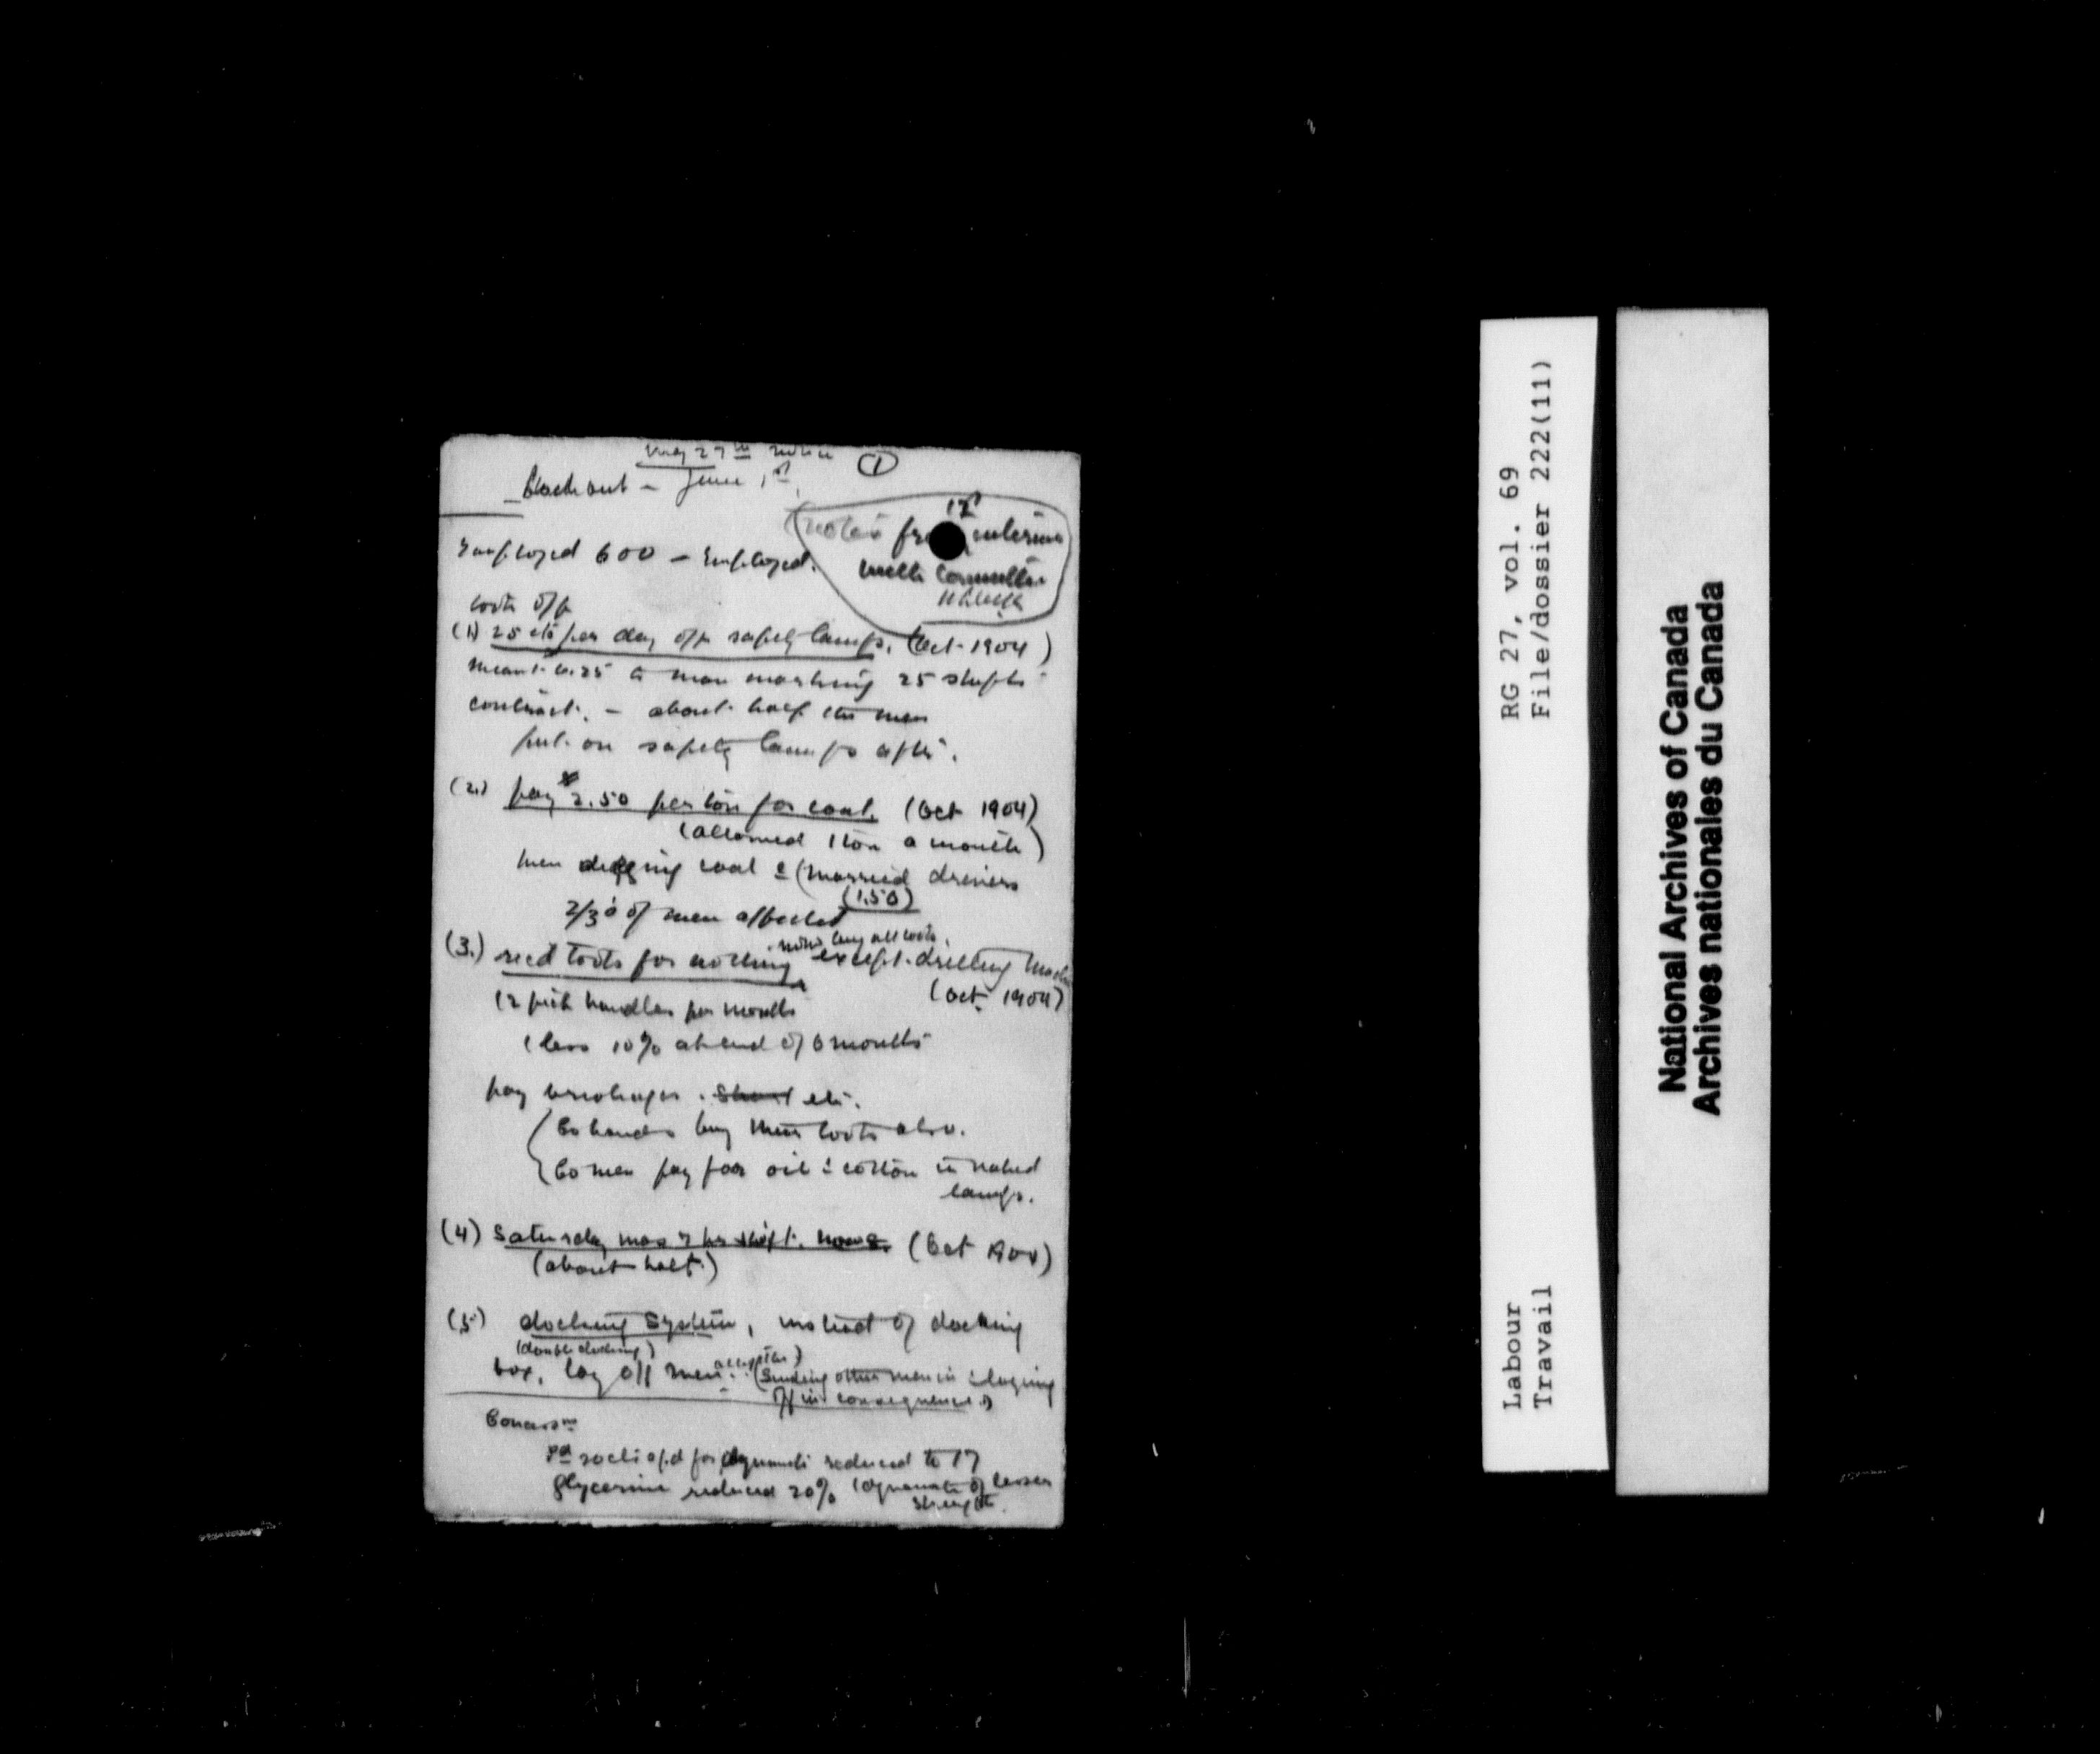 May 27th notice ①
Lockout - June 1st.
Notes from 1st interview
with Committee
Employed 600 - Employed.
took off
(1) 25 cts per day off safety lamps. (Oct. 1904)
meant 6.25 to man working 25 shifts
contract. - about half the men
put on safety lamps after.
(2.) pay $2.50 per ton for coal. (Oct 1904)
(allowed 1 ton a month)
men digging coal & (married drivers
(1.50)
2/3 of men affected
(3.) recd tools for nothing now buy all tools,
except drilling mach
(Oct. 1904)
(2 pick handles per month
(less 10% at end of 6 months
pay etc.
Co hands buy their tools also.
Co men pay for oil & cotton in naked
lamps.
(4) Saturday was 7 hr shift. now 8. (Oct
(about half)
(5) docking system, instead of docking
(double docking)
box, lay off men altogether)
(sending other men in & laying
off in consequence)
pd for dynamite reduced to 17
glycerine reduced 20% (dynamite of lesser
strength.
RG 27, vol. 69
File/dossier 222(11)
Labour
Travail
National Archives of Canada
Archives nationales du Canada